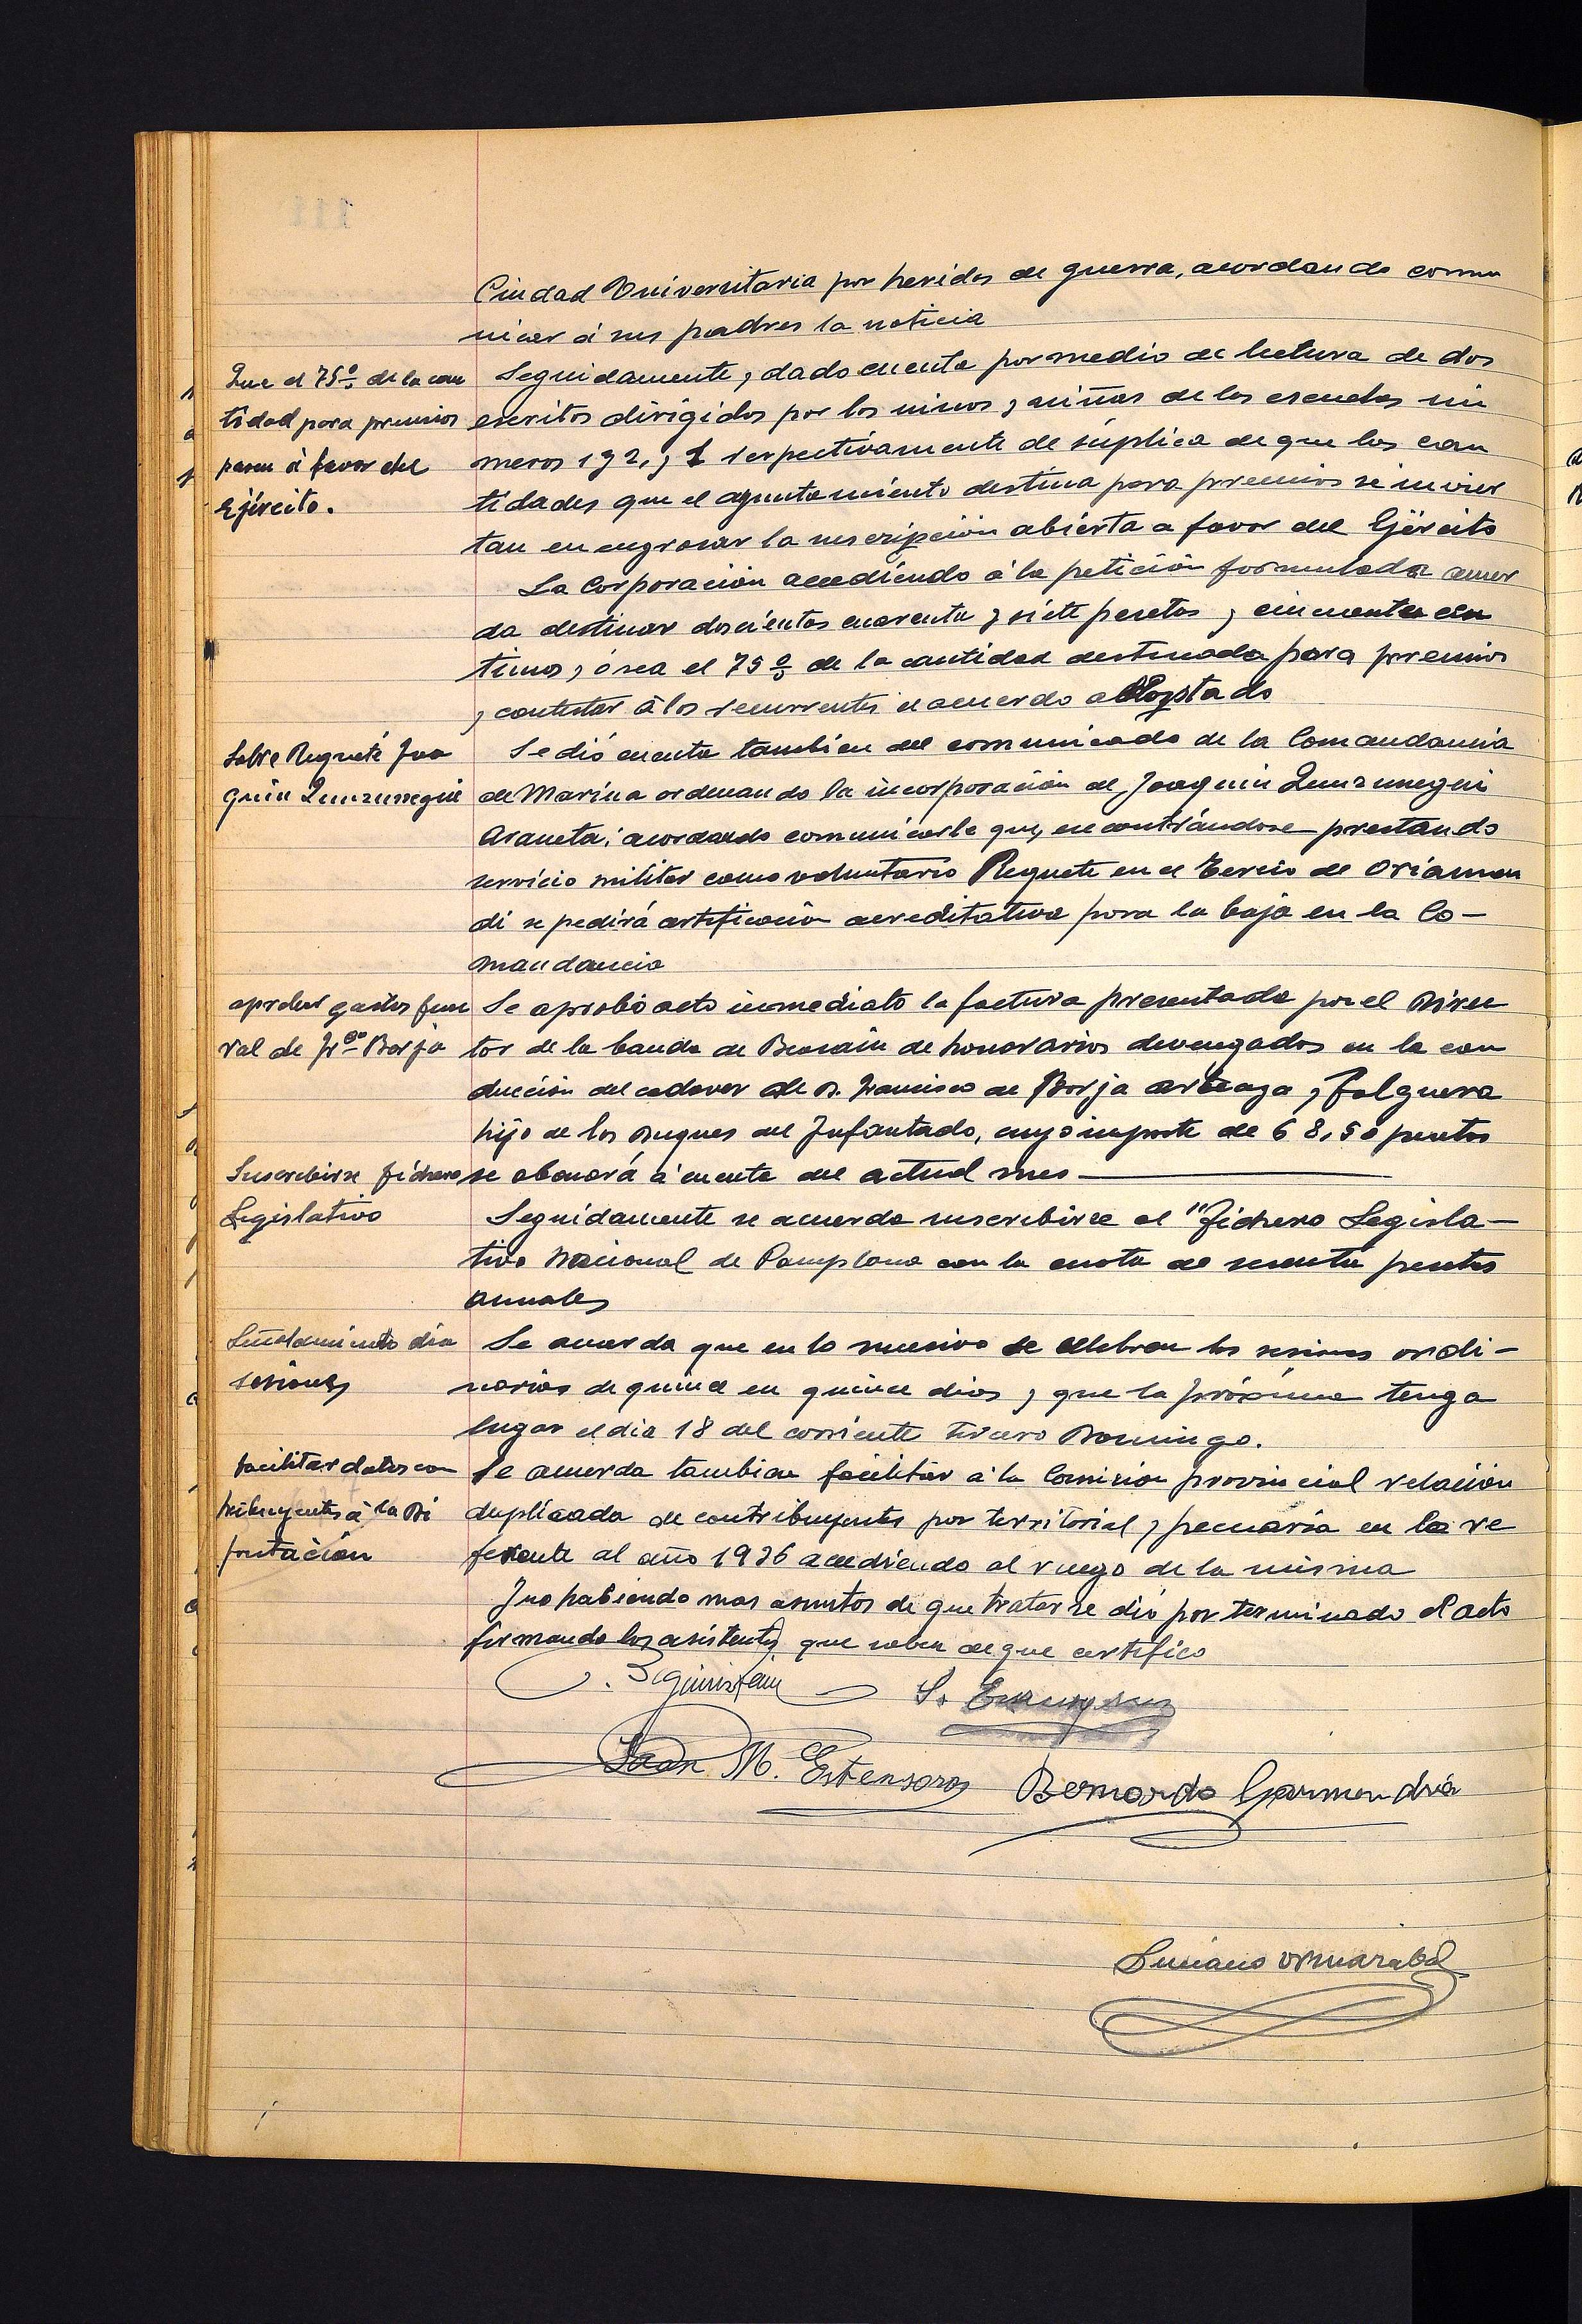 Ciudad Universitaria por heridas de guerra, acordando comu
nicar á sus padres la noticia
Que el 75% de la can
tidad para premios
pasen á favor del
Ejército.
Seguidamente, dado cuenta por medio de lectura de dos
escritos dirigidos por los niños y niñas de las escuelas nú
meros 1 y 2, y 1 respectivamente de súplica de que las can
tidades que el ayuntamiento destina para premios se invier
tan en engrosar la suscripción abierta a favor del Ejército
La Corporación accediendo á la petición formulada acuer
da destinar doscientas cuarenta y siete pesetas y cincuenta cen
timos, ó sea el 75% de la cantidad destinada para premios
y contestar á los recurrentes el acuerdo adoptado
Sobre Requeté Joa
quin Zunzunegui
Se dió cuenta tambien del comunicado de la Comandancia
de Marina ordenando la incorporación de Joaquin Zunzunegui
Araneta; acordando comunicarle que, encontrándose prestando
servicio militar como voluntario Requete en el Tercio de Oriamen
di se pedirá certificación acreditativa para la baja en la Co-
mandancia
aprobar gastos fune
ral de Frco Borja
Se aprobó acto inmediato la factura presentada por el Direc
tor de la banda de Beasain de honorarios devengados en la con
ducción del cadaver de D. Francisco de Borja arteaga y falguera
hijo de los Duques del Infantado, cuyo importe de 68,50 pesetas
se abonará á cuenta del actual mes
Suscribirse fichero
Legislativo
Seguidamente se acuerda suscribirse al "fichero Legisla-
tivo Nacional de Pamplona con la cuota de sesenta pesetas
anuales
Señalamiento dia
sesiones
Se acuerda que en lo sucesivo se celebren las sesiones ordi-
narias de quince en quince dias y que la próxima tenga
lugar el dia 18 del corriente tercero Domingo.
facilitar datos con
tribuyentes á la Di
putación
Se acuerda tambien facilitar á la Comision provincial relación
duplicada de contribuyentes por territorial y pecuaria en la re
ferente al año 1936 accediendo al ruego de la misma
Y no habiendo mas asuntos de que tratar se dió por terminado el acto
firmando los asistentes que saben de que certifico
Juan M. Estensoro
Bernardo Garmendia
Luciano